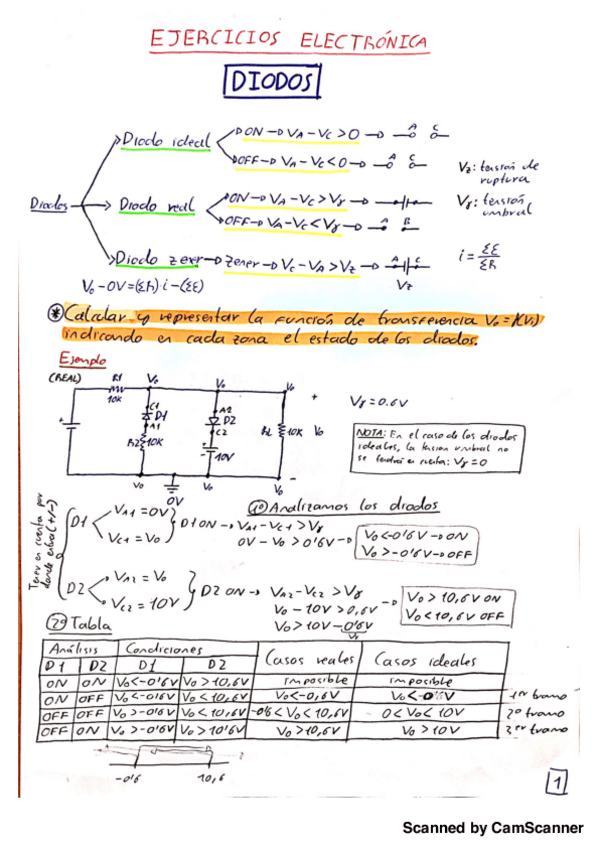 EJERCICIOS ELECTRÓNICA
DIODOS
Diodo ideal
ON → VA - VC > 0 → A C
OFF → VA - VC < 0 → A C
Vz: tensión de ruptura
Diodos
Diodo real
ON → VA - VC > Vγ →
OFF → VA - VC < Vγ → A B
Vγ: tensión umbral
Diodo zener → Zener → VC - VA > Vz → A C
Vz
i = ΣE / ΣR
Vo - 0V = (ΣR) i - (ΣE)
* Calcular y representar la función de transferencia Vo = f(Vi)
indicando en cada zona el estado de los diodos.
Ejemplo
(REAL) R1 Vo Vo Vo
10K
+ C1 D1 A1 R2 10K
A2 D2 C2 10V
RL 10K Vo
+
-
Vo 0V Vo Vo
Vγ = 0.6V
NOTA: En el caso de los diodos
ideales, la tensión umbral no
se tendrá en cuenta: Vγ = 0
Tener en cuenta por
donde entra (+/-)
1º Analizamos los diodos
D1 VA1 = 0V
VC1 = Vo
D1 ON → VA1 - VC1 > Vγ
0V - Vo > 0'6V →
Vo < -0'6V → ON
Vo > -0'6V → OFF
D2 VA2 = Vo
VC2 = 10V
D2 ON → VA2 - VC2 > Vγ
Vo - 10V > 0,6V →
Vo > 10V - 0'6V
Vγ
Vo > 10,6V ON
Vo < 10,6V OFF
2º Tabla
Análisis Condiciones Casos reales Casos ideales
D1 D2 D1 D2
ON ON Vo < -0'6V Vo > 10,6V imposible imposible
ON OFF Vo < -0'6V Vo < 10,6V Vo < -0,6V Vo < 0V 1er tramo
OFF OFF Vo > -0'6V Vo < 10,6V -0'6 < Vo < 10,6V 0 < Vo < 10V 2º tramo
OFF ON Vo > -0'6V Vo > 10'6V Vo > 10,6V Vo > 10V 3er tramo
-0'6 10,6
1
Scanned by CamScanner